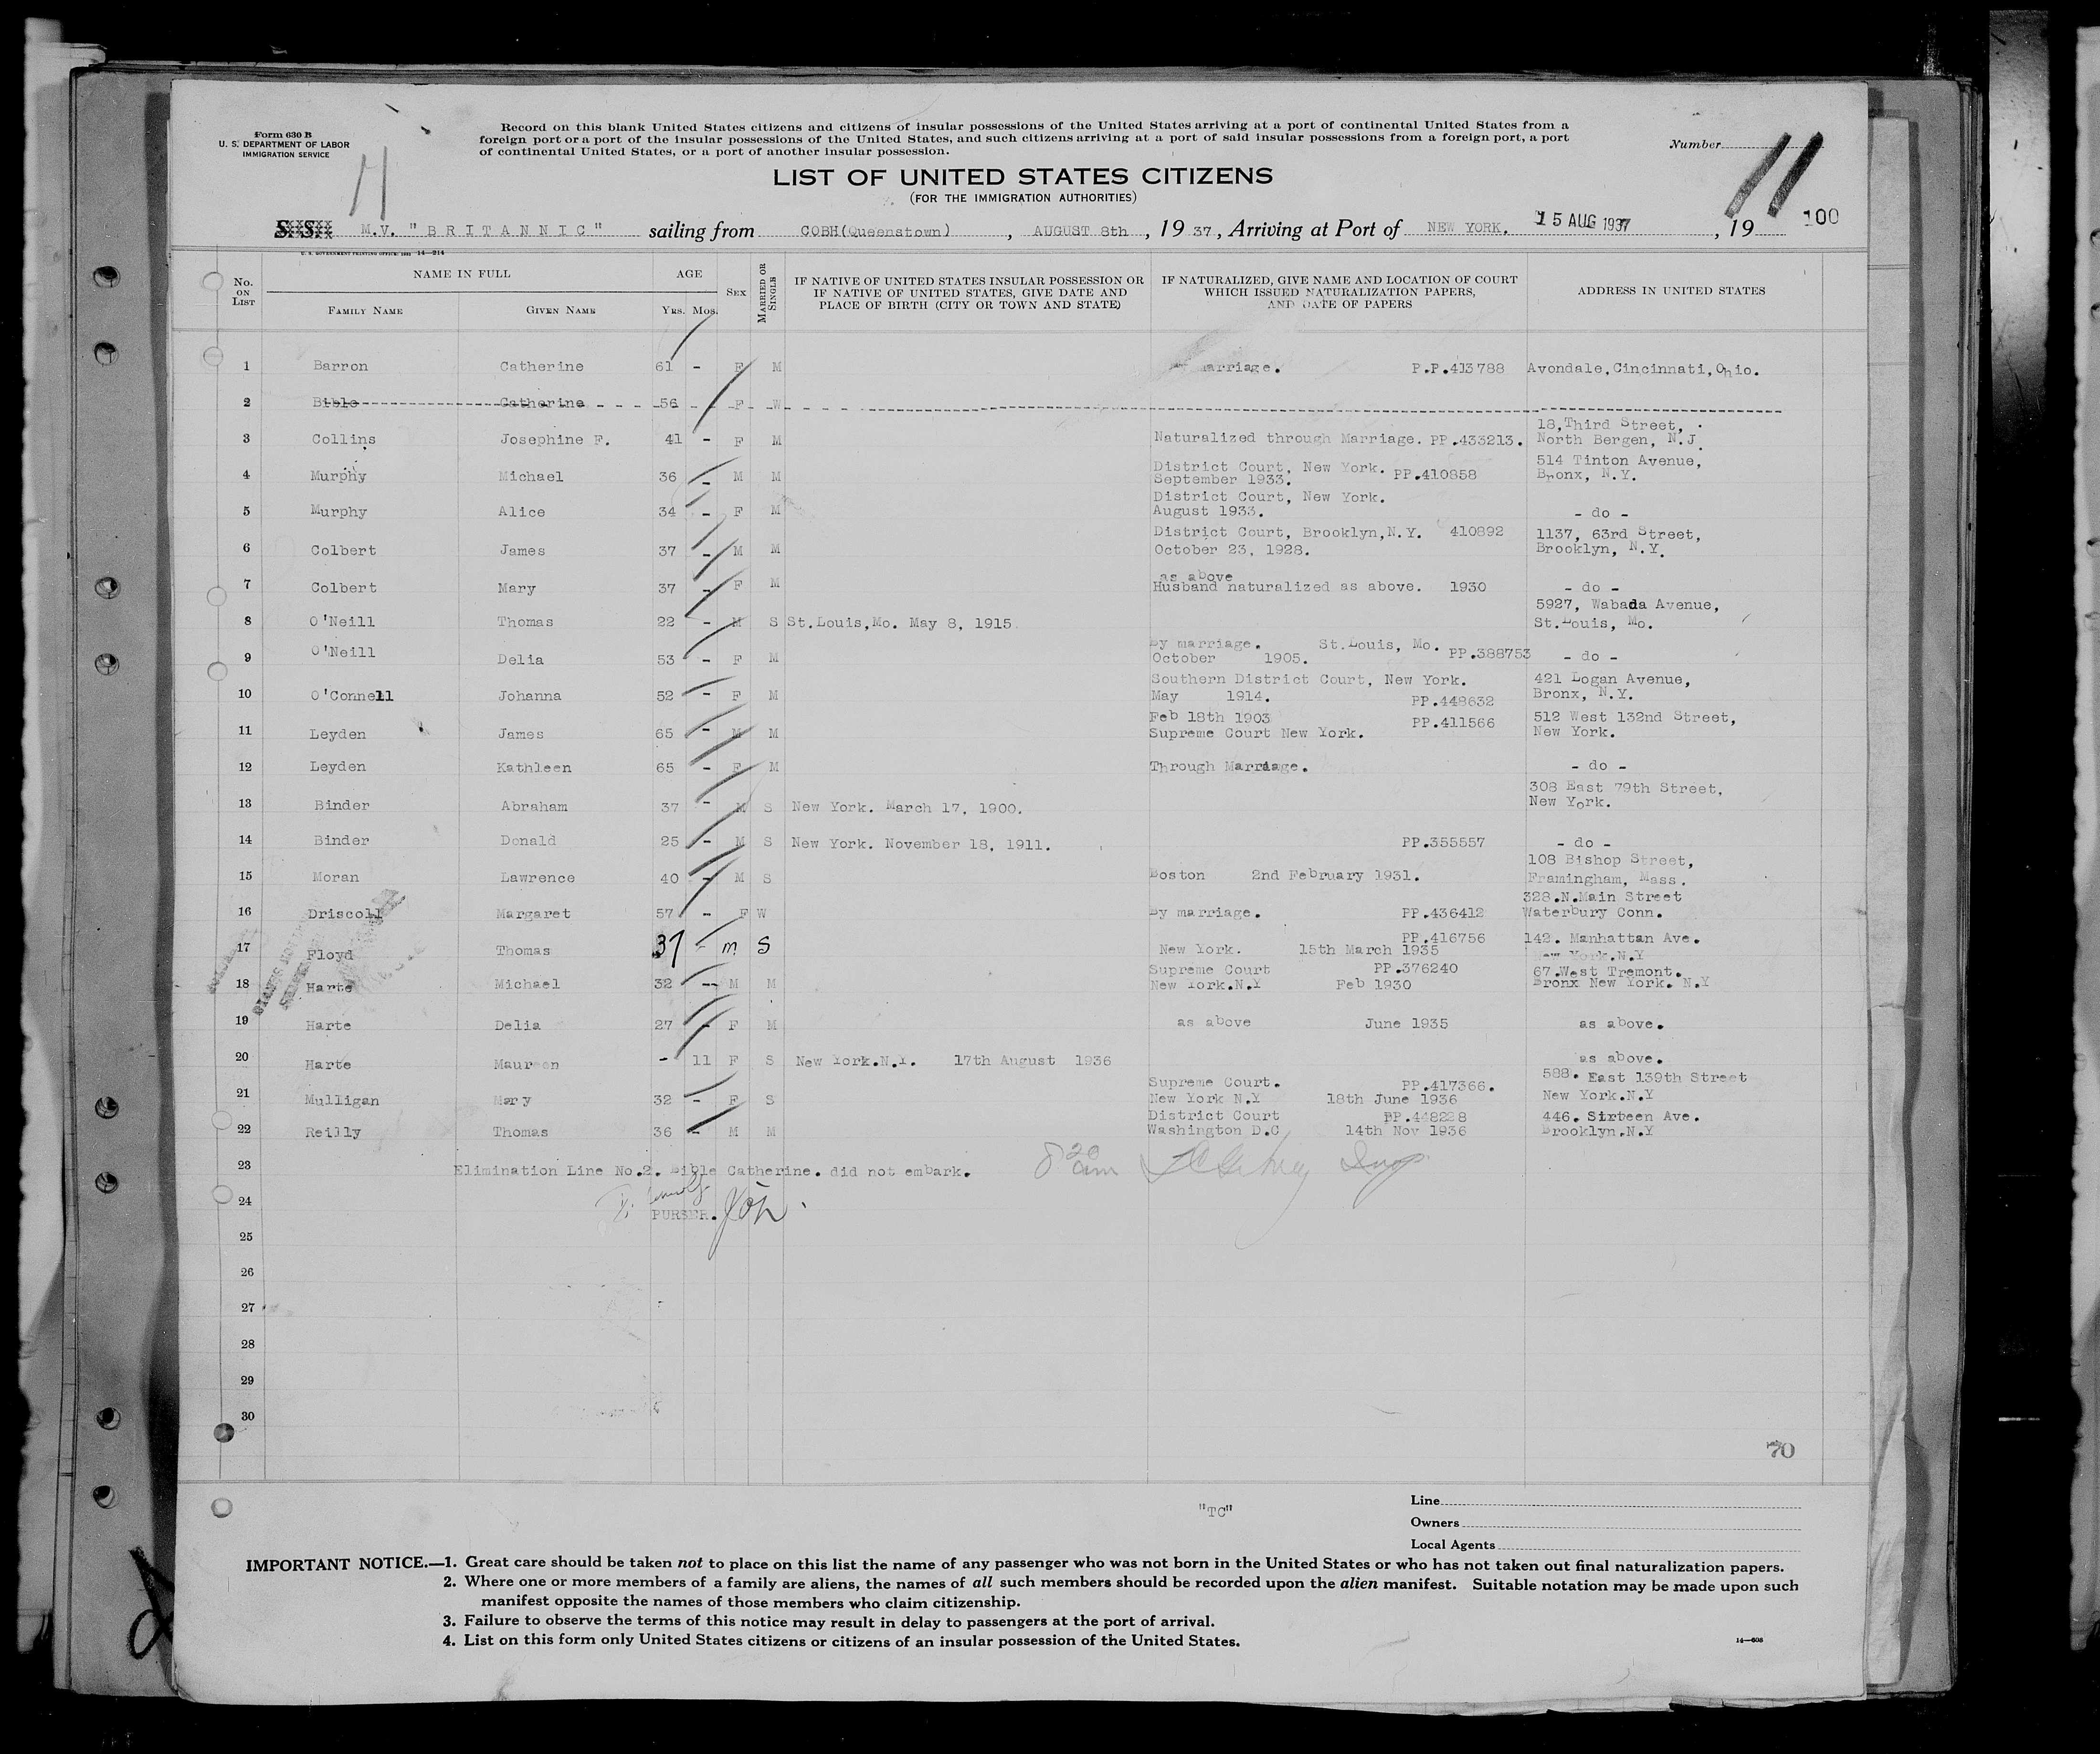 Form 630 B
U. S. DEPARTMENT OF LABOR
IMMIGRATION SERVICE
Record on this blank United States citizens and citizens of insular possessions of the United States arriving at a port of continental United States from a
foreign port or a port of the insular possessions of the United States, and such citizens arriving at a port of said insular possessions from a foreign port, a port
of continental United States, or a port of another insular possession.
Number 11
11
LIST OF UNITED STATES CITIZENS
(FOR THE IMMIGRATION AUTHORITIES)
S. S. M.V. "BRITANNIC" sailing from COBH(Queenstown), AUGUST 8th, 19 37, Arriving at Port of NEW YORK. 15 AUG 1937, 19 100
U. S. GOVERNMENT PRINTING OFFICE: 1931 14-214
No. ON LIST NAME IN FULL AGE SEX MARRIED OR SINGLE IF NATIVE OF UNITED STATES INSULAR POSSESSION OR IF NATIVE OF UNITED STATES, GIVE DATE AND PLACE OF BIRTH (CITY OR TOWN AND STATE) IF NATURALIZED, GIVE NAME AND LOCATION OF COURT WHICH ISSUED NATURALIZATION PAPERS, AND DATE OF PAPERS ADDRESS IN UNITED STATES
FAMILY NAME GIVEN NAME YRS. MOS.
1 Barron Catherine 61 - F M marriage. P.P.413788 Avondale,Cincinnati,Ohio.
2 Bible Catherine 56 - F W
3 Collins Josephine F. 41 - F M Naturalized through Marriage. PP.433213. 18,Third Street, North Bergen, N.J.
4 Murphy Michael 36 - M M District Court, New York. September 1933. PP.410858 514 Tinton Avenue, Bronx, N.Y.
5 Murphy Alice 34 - F M District Court, New York. August 1933. - do -
6 Colbert James 37 - M M District Court, Brooklyn,N.Y. 410892 October 23, 1928. 1137, 63rd Street, Brooklyn, N.Y.
7 Colbert Mary 37 - F M as above Husband naturalized as above. 1930 - do -
8 O'Neill Thomas 22 - M S St.Louis,Mo. May 8, 1915. 5927, Wabada Avenue, St.Louis, Mo.
9 O'Neill Delia 53 - F M By marriage. St.Louis, Mo. October 1905. PP.388753 - do -
10 O'Connell Johanna 52 - F M Southern District Court, New York. May 1914. PP.448632 421 Logan Avenue, Bronx, N.Y.
11 Leyden James 65 - M M Feb 18th 1903 PP.411566 Supreme Court New York. 512 West 132nd Street, New York.
12 Leyden Kathleen 65 - F M Through Marriage. - do -
13 Binder Abraham 37 - M S New York. March 17, 1900. 308 East 79th Street, New York.
14 Binder Donald 25 - M S New York. November 18, 1911. PP.355557 - do -
15 Moran Lawrence 40 - M S Boston 2nd February 1931. 108 Bishop Street, Framingham, Mass.
16 Driscoll Margaret 57 - F W By marriage. PP.436412 328.N.Main Street Waterbury Conn.
17 Floyd Thomas 37 - m S PP.416756 New York. 15th March 1935 142. Manhattan Ave. New York.N.Y
18 Harte Michael 32 - M M Supreme Court PP.376240 New York.N.Y Feb 1930 67.West Tremont. Bronx New York. N.Y
19 Harte Delia 27 - F M as above June 1935 as above.
20 Harte Maureen - 11 F S New York.N.Y. 17th August 1936 as above.
21 Mulligan Mary 32 - F S Supreme Court. PP.417366. New York N.Y 18th June 1936 588. East 139th Street New York.N.Y
22 Reilly Thomas 36 - M M District Court PP.448228 Washington D.C 14th Nov 1936 446. Sixteen Ave. Brooklyn.N.Y
23 Elimination Line No.2. Bible Catherine. did not embark. 8 20 am
24 PURSER.
25
26
27
28
29
30
70
"TC"
Line
Owners
Local Agents
IMPORTANT NOTICE.—1. Great care should be taken not to place on this list the name of any passenger who was not born in the United States or who has not taken out final naturalization papers.
2. Where one or more members of a family are aliens, the names of all such members should be recorded upon the alien manifest. Suitable notation may be made upon such
manifest opposite the names of those members who claim citizenship.
3. Failure to observe the terms of this notice may result in delay to passengers at the port of arrival.
4. List on this form only United States citizens or citizens of an insular possession of the United States.
14—608